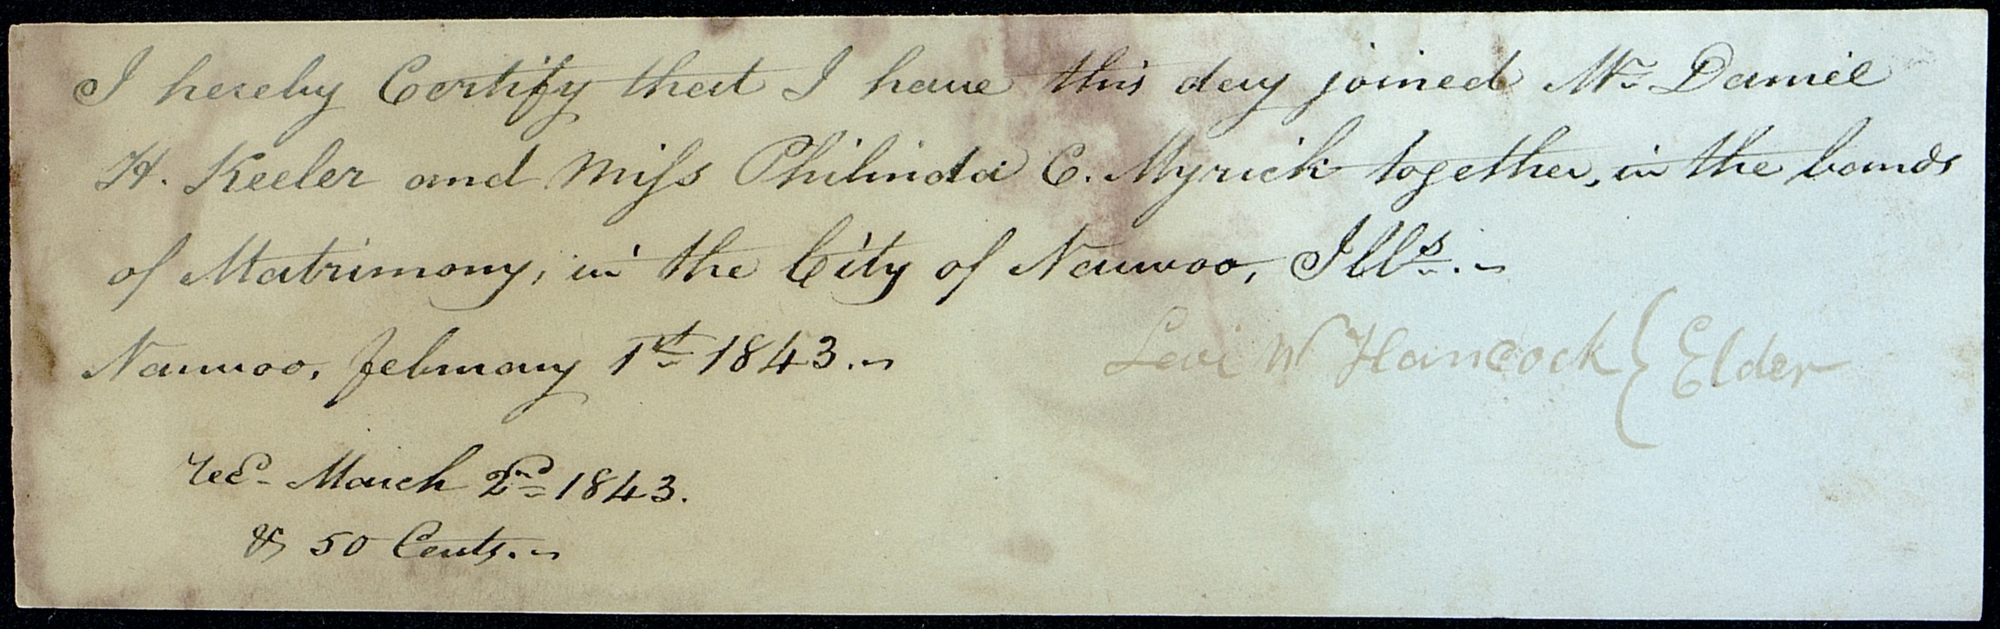 I hereby Certify that I have this day joined Mr. Daniel
H. Keeler and Miss Philinda C. Myrick together, in the bonds
of Matrimony, in the City of Nauvoo, Ills.
Nauvoo, February 1st 1843.
Levi W Hancock { Elder
rec. March 2nd 1843.
& 50 Cents.